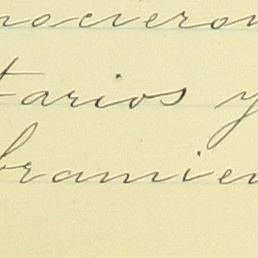 nocieron
tarios y
bramien